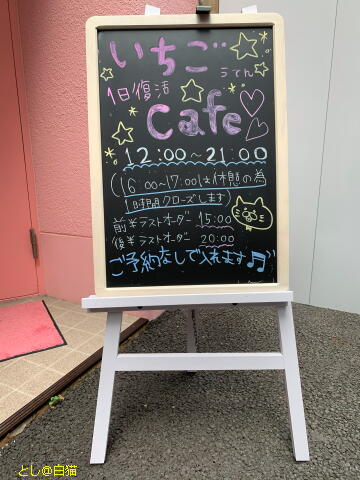 いちご
うてん
1日復活
Cafe
12:00~21:00
(16:00~17:00は休憩の為
1時間クローズします)
前半ラストオーダー 15:00
後半ラストオーダー 20:00
ご予約なしで入れます♫
とし@白猫